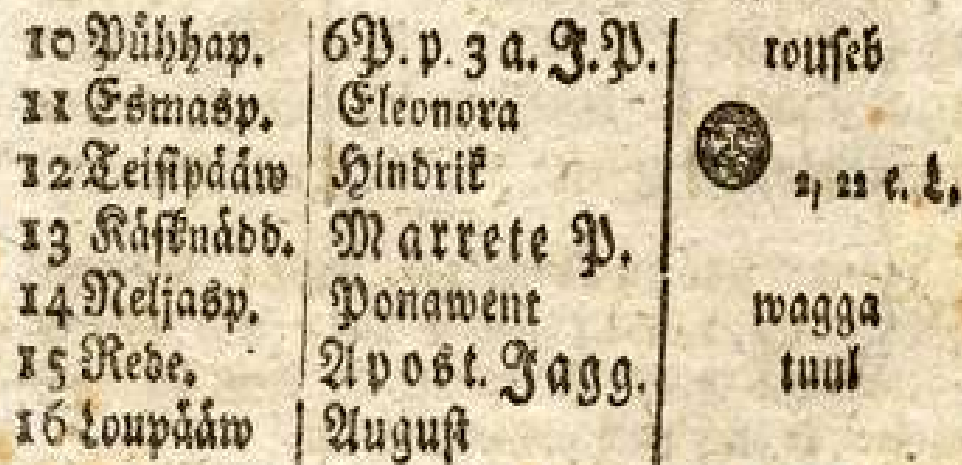 10 Pühhap. 6P. p. 3 a. J. P. rouseb
11 Esmasp. Eleonora
12 Teisipääw Hindrik 2, 22 e. L.
13 Käsknädd. Marrete P.
14 Neljasp. Ponawent wagga
15 Rede. Apost. Jagg. tuul
16 Loupääw August